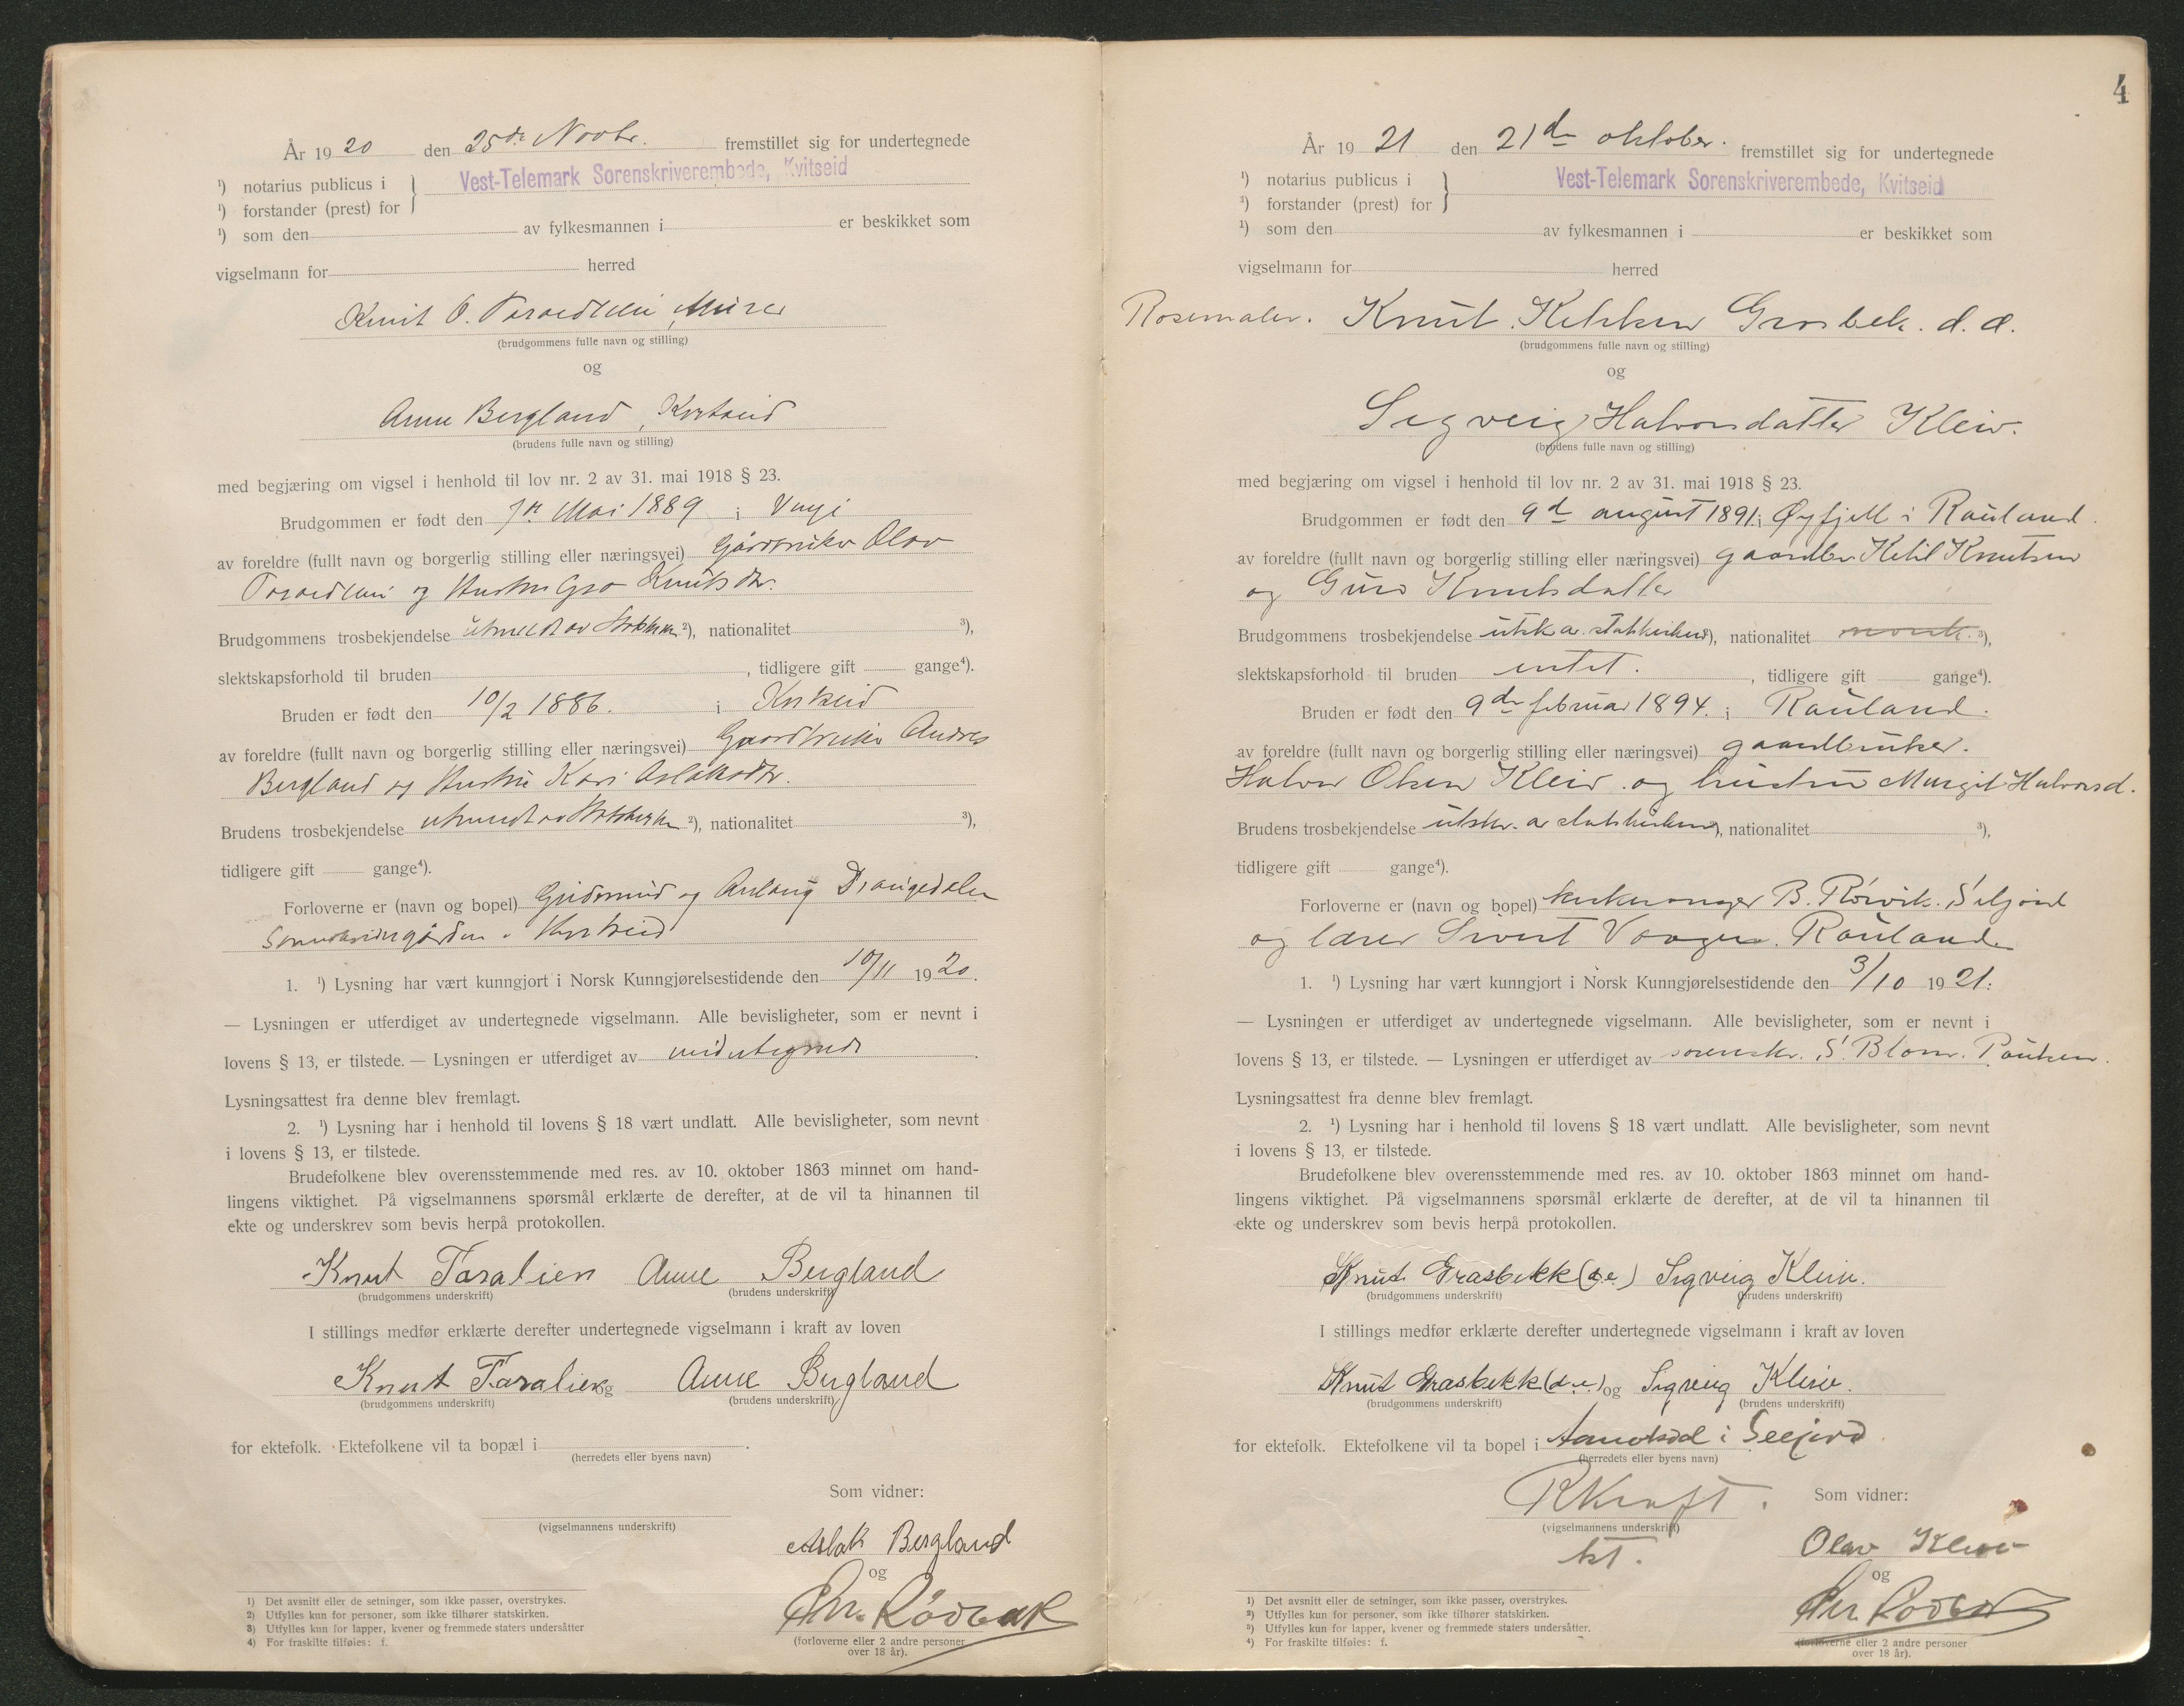 År 1920 den 25de Novbr. fremstillet sig for undertegnede
¹) notarius publicus i
Vest-Telemark Sorenskriverembede, Kvitseid
¹) forstander (prest) for
¹) som den av fylkesmannen i er beskikket som
vigselmann for herred
Knut O. Murer
(brudgommens fulle navn og stilling)
og
Anne Bergland, Kviteseid
(brudens fulle navn og stilling)
med begjæring om vigsel i henhold til lov nr. 2 av 31. mai 1918 § 23.
Brudgommen er født den Mai 1889 i Vinje
av foreldre (fullt navn og borgerlig stilling eller næringsvei) Gårdbruker Olav
og Hustru Gro Knutsdtr.
Brudgommens trosbekjendelse utmeldt av Statskirken ²), nationalitet ³),
slektskapsforhold til bruden , tidligere gift gange⁴).
Bruden er født den 10/2 1886. i Kviteseid
av foreldre (fullt navn og borgerlig stilling eller næringsvei) Gaardbruker Andres
Bergland og Hustru Kari Aslaksdtr.
Brudens trosbekjendelse utmeldt av Statskirken ²), nationalitet ³),
tidligere gift gange⁴).
Forloverne er (navn og bopel) Gudmund og Aslaug Drangedalen
Kviteseid
1. ¹) Lysning har vært kunngjort i Norsk Kunngjørelsestidende den 10/11 1920.
— Lysningen er utferdiget av undertegnede vigselmann. Alle bevisligheter, som er nevnt i
lovens § 13, er tilstede. — Lysningen er utferdiget av undertegnede
Lysningsattest fra denne blev fremlagt.
2. ¹) Lysning har i henhold til lovens § 18 vært undlatt. Alle bevisligheter, som nevnt
i lovens § 13, er tilstede.
Brudefolkene blev overensstemmende med res. av 10. oktober 1863 minnet om hand-
lingens viktighet. På vigselmannens spørsmål erklærte de derefter, at de vil ta hinannen til
ekte og underskrev som bevis herpå protokollen.
Knut Taralien Anne Bergland
(brudgommens underskrift) (brudens underskrift)
I stillings medfør erklærte derefter undertegnede vigselmann i kraft av loven
Knut Taralien og Anne Bergland
(brudgommens underskrift) (brudens underskrift)
for ektefolk. Ektefolkene vil ta bopæl i .
(herredets eller byens navn)
Som vidner:
(vigselmannens underskrift)
Aslak Bergland
og
Chr. Rödbak
(forloverne eller 2 andre personer
over 18 år).
1) Det avsnitt eller de setninger, som ikke passer, overstrykes.
2) Utfylles kun for personer, som ikke tilhører statskirken.
3) Utfylles kun for lapper, kvener og fremmede staters undersåtter
4) For fraskilte tilføies: f.
4
År 1921 den 21de oktober. fremstillet sig for undertegnede
¹) notarius publicus i
Vest-Telemark Sorenskriverembede, Kvitseid
¹) forstander (prest) for
¹) som den av fylkesmannen i er beskikket som
vigselmann for herred
Rosemaler. Knut Ketilsen Grosbek. d. æ.
(brudgommens fulle navn og stilling)
og
Sigveig Halvorsdatter Kleiv.
(brudens fulle navn og stilling)
med begjæring om vigsel i henhold til lov nr. 2 av 31. mai 1918 § 23.
Brudgommen er født den 9de august 1891 i Øyfjell i Rauland.
av foreldre (fullt navn og borgerlig stilling eller næringsvei) gaardbr. Ketil Knutsen
og Guro Knutsdatter
Brudgommens trosbekjendelse utsk. av statskirken ²), nationalitet norsk. ³),
slektskapsforhold til bruden intet. , tidligere gift gange⁴).
Bruden er født den 9de februar 1894. i Rauland.
av foreldre (fullt navn og borgerlig stilling eller næringsvei) gaardbruker.
Halvor Olsen Kleiv. og hustru Margit Halvorsd.
Brudens trosbekjendelse utskr. av statskirken ²), nationalitet ³),
tidligere gift gange⁴).
Forloverne er (navn og bopel) kirkesanger B. Rorvik. Seljord
og lærer Sivert Vaagen. Rauland.
1. ¹) Lysning har vært kunngjort i Norsk Kunngjørelsestidende den 3/10 1921.
— Lysningen er utferdiget av undertegnede vigselmann. Alle bevisligheter, som er nevnt i
lovens § 13, er tilstede. — Lysningen er utferdiget av sorenskr. S. Blom. Paulsen.
Lysningsattest fra denne blev fremlagt.
2. ¹) Lysning har i henhold til lovens § 18 vært undlatt. Alle bevisligheter, som nevnt
i lovens § 13, er tilstede.
Brudefolkene blev overensstemmende med res. av 10. oktober 1863 minnet om hand-
lingens viktighet. På vigselmannens spørsmål erklærte de derefter, at de vil ta hinannen til
ekte og underskrev som bevis herpå protokollen.
Knut Grasbekk (d.e.) Sigveig Kleiv.
(brudgommens underskrift) (brudens underskrift)
I stillings medfør erklærte derefter undertegnede vigselmann i kraft av loven
Knut Grasbekk (d.e.) og Sigveig Kleiv.
(brudgommens underskrift) (brudens underskrift)
for ektefolk. Ektefolkene vil ta bopel i Aamotsdal i Seljord
(herredets eller byens navn)
RKraft. Som vidner:
(vigselmannens underskrift)
kst.
Olav Kleiv
og
Chr Rödbak
(forloverne eller 2 andre personer
over 18 år).
1) Det avsnitt eller de setninger, som ikke passer, overstrykes.
2) Utfylles kun for personer, som ikke tilhører statskirken.
3) Utfylles kun for lapper, kvener og fremmede staters undersåtter.
4) For fraskilte tilføies: f.